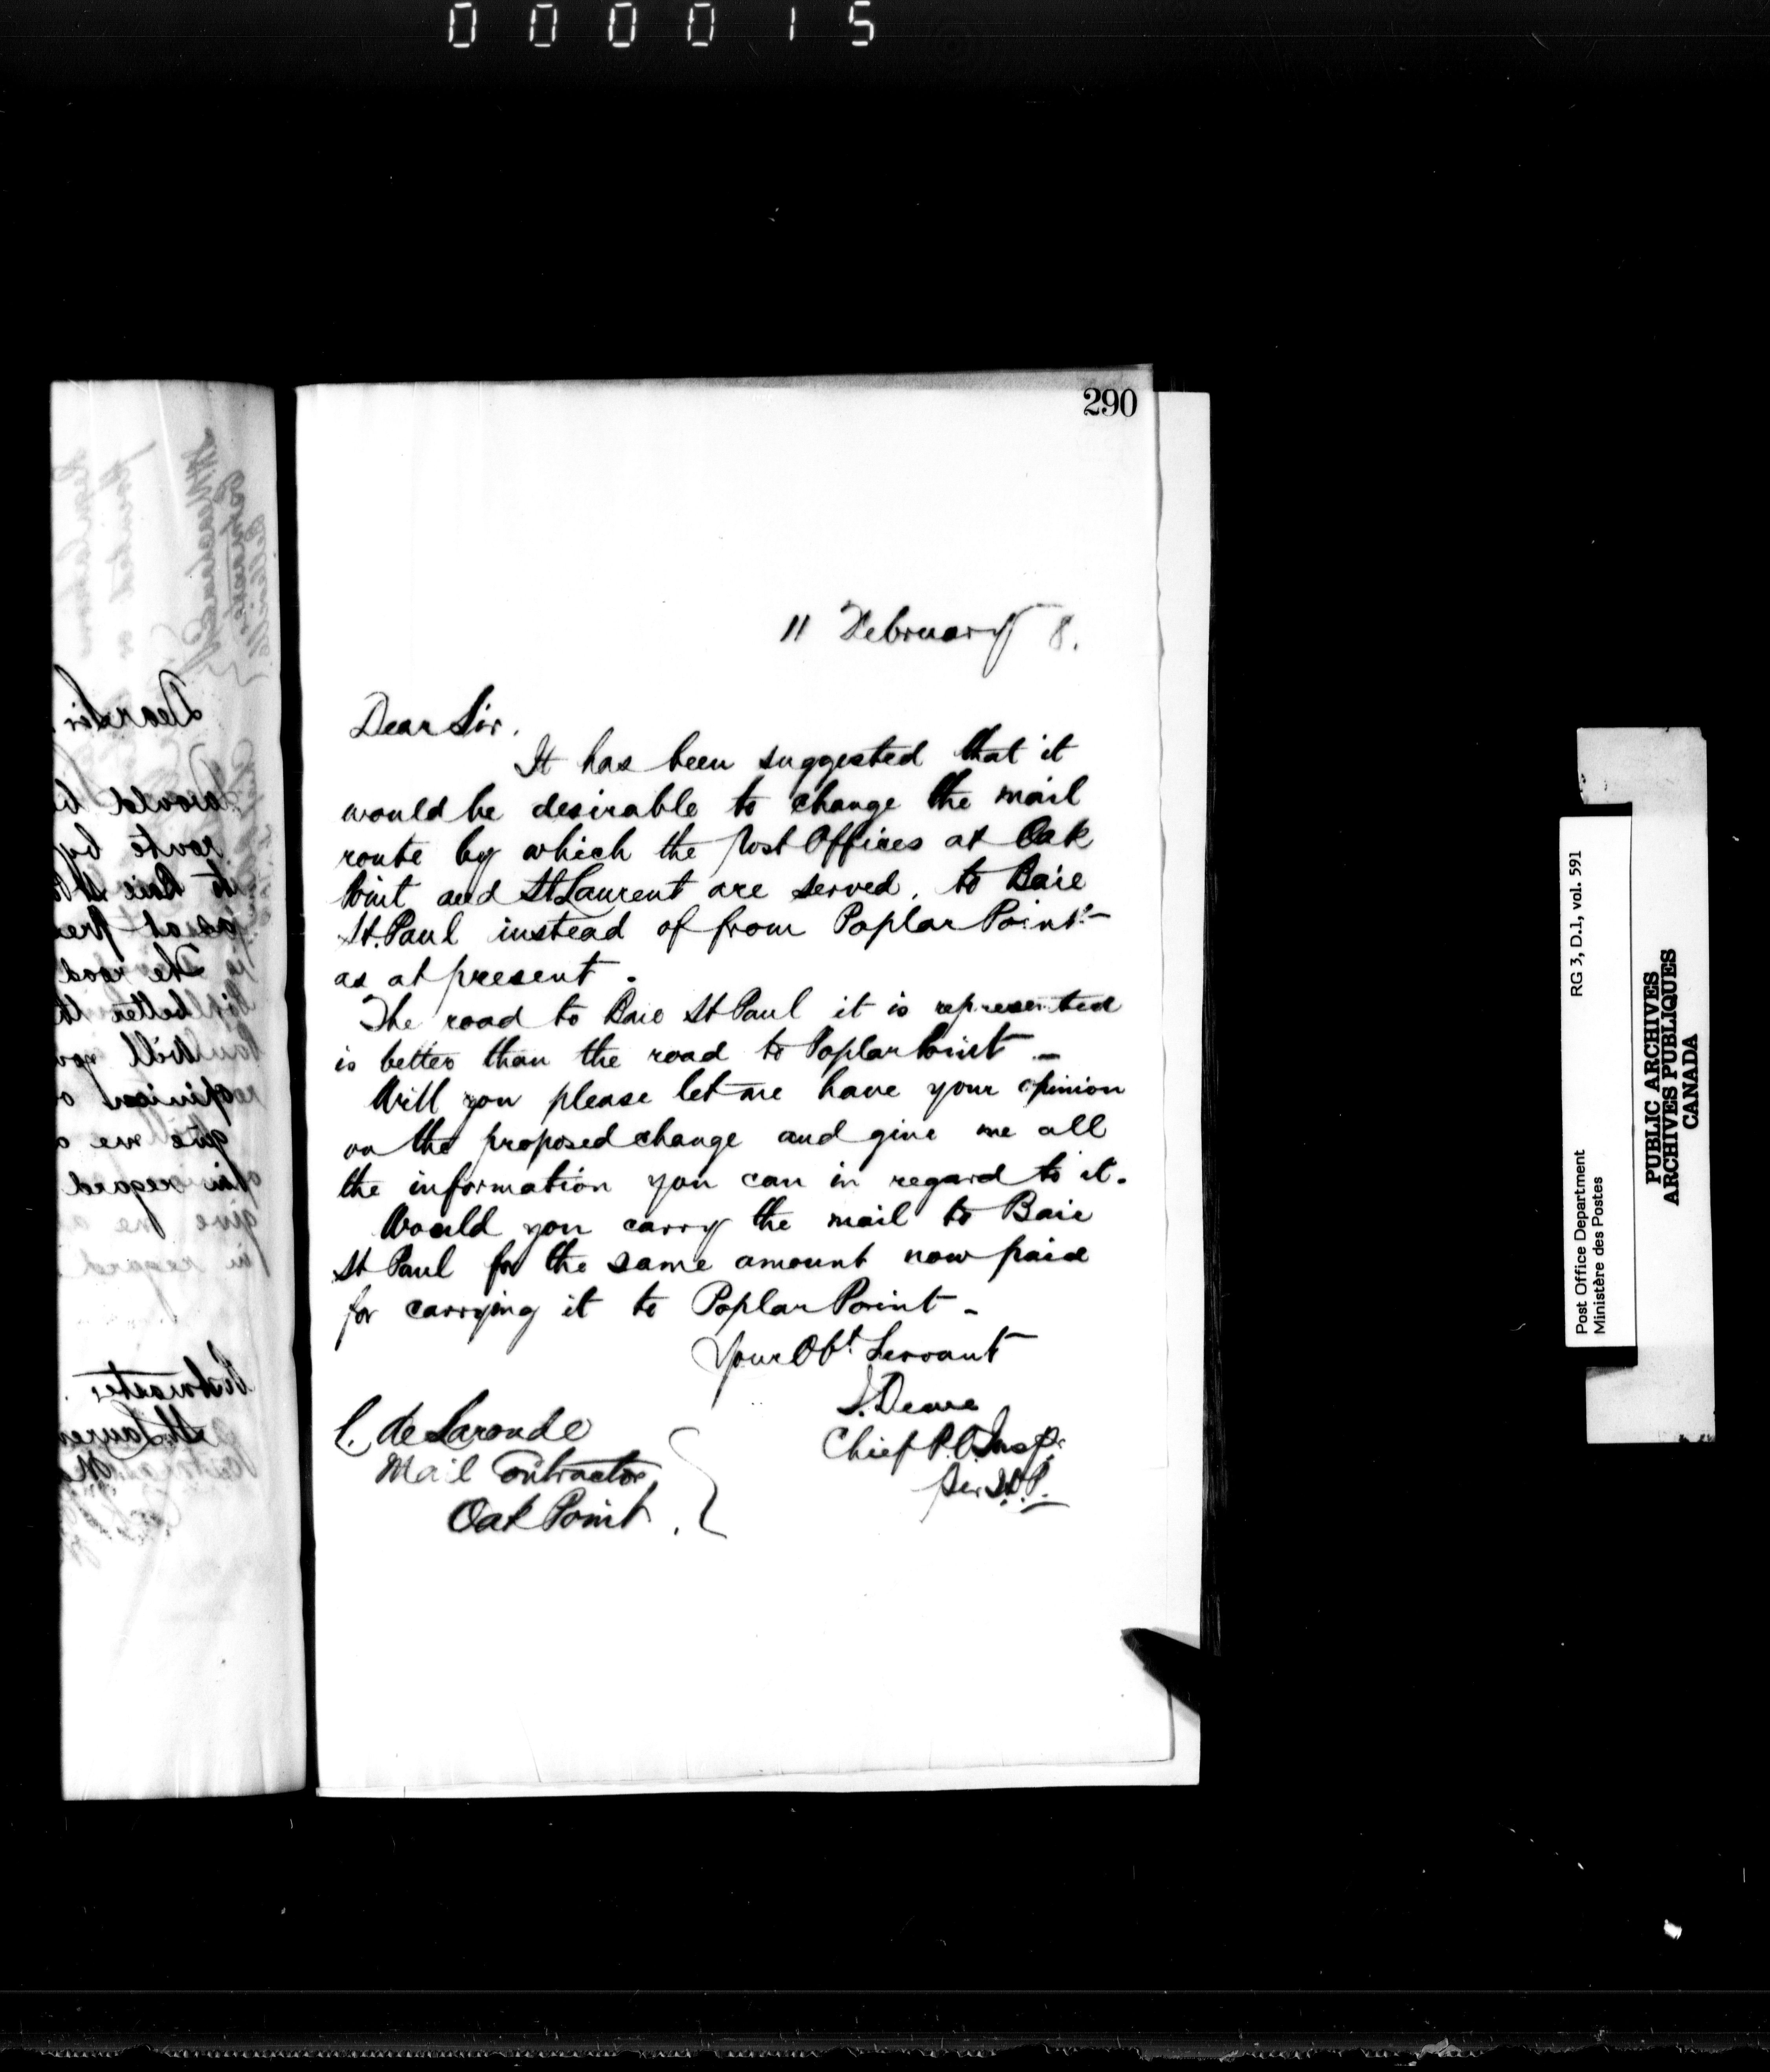 000015
290
11 February 8.
Dear Sir.
It has been suggested that it
would be desirable to change the mail
route by which the Post Offices at Oak
Point and St Laurent are served, to Baie
St. Paul instead of from Poplar Point -
as at present.
The road to Baie St Paul it is represented
is better than the road to Poplar Point -
Will you please let me have your opinion
on the proposed change and give me all
the information you can in regard to it.
Would you carry the mail to Baie
St Paul for the same amount now paid
for carrying it to Poplar Point -
Your Obt Servant
J. Dewe
Chief P.O. Insp.
Per
C. de Laronde
Mail Contractor
Oak Point.
Dear Sir.
would b
route by
to Baie St P
as at pre
The road
better th
Will you
opinion o
give me a
in regard
Postmaster
St Lauren
Post Office Department
Ministère des Postes
RG 3, D.1, vol. 591
PUBLIC ARCHIVES
ARCHIVES PUBLIQUES
CANADA